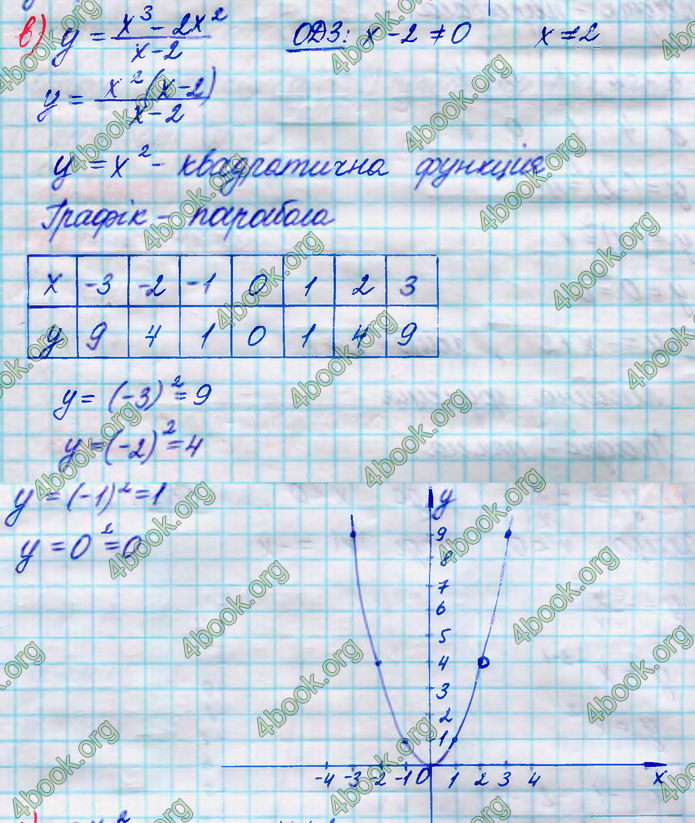 в) y = x³ - 2x² / x - 2 ОДЗ: x - 2 ≠ 0 x ≠ 2
y = x²(x-2) / x - 2
y = x² - квадратична функція
Графік - парабола
x -3 -2 -1 0 1 2 3
y 9 4 1 0 1 4 9
y = (-3)² = 9
y = (-2)² = 4
y = (-1)² = 1
y = 0² = 0
y
9
8
7
6
5
4
3
2
1
-4 -3 -2 -1 0 1 2 3 4 x
4book.org